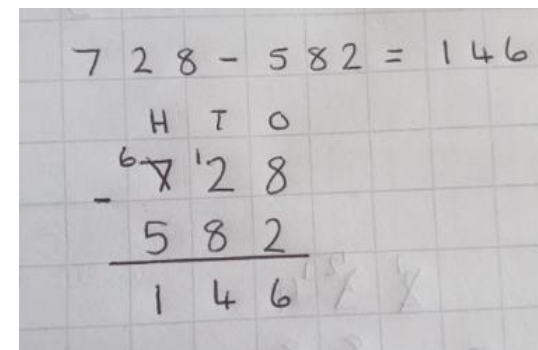 728 - 582 = 146
H T O
6 7 1 2 8
- 5 8 2
1 4 6